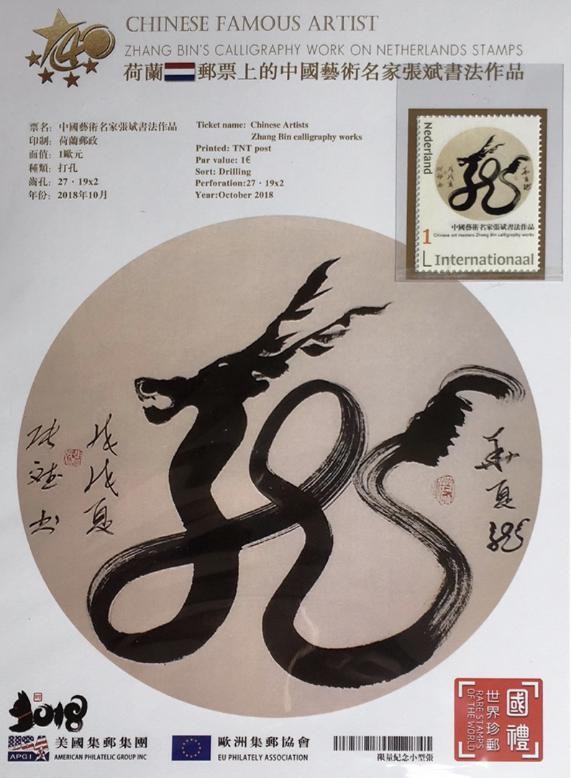 140
CHINESE FAMOUS ARTIST
ZHANG BIN'S CALLIGRAPHY WORK ON NETHERLANDS STAMPS
荷蘭郵票上的中國藝術名家張斌書法作品
票名：中國藝術名家張斌書法作品
印制：荷蘭郵政
面值：1歐元
種類：打孔
齒孔：27·19x2
年份：2018年10月
Ticket name: Chinese Artists
Zhang Bin calligraphy works
Printed: TNT post
Par value: 1€
Sort: Drilling
Perforation:27·19x2
Year:October 2018
Nederland
中國藝術名家張斌書法作品
Chinese art masters Zhang Bin calligraphy works
1
Internationaal
戊戌夏
張斌書
華夏龍
2018
APGI
美國集郵集團
AMERICAN PHILATELIC GROUP INC
歐洲集郵協會
EU PHILATELY ASSOCIATION
限量紀念小型張
國禮
世界珍郵
RARE STAMPS
OF THE WORLD